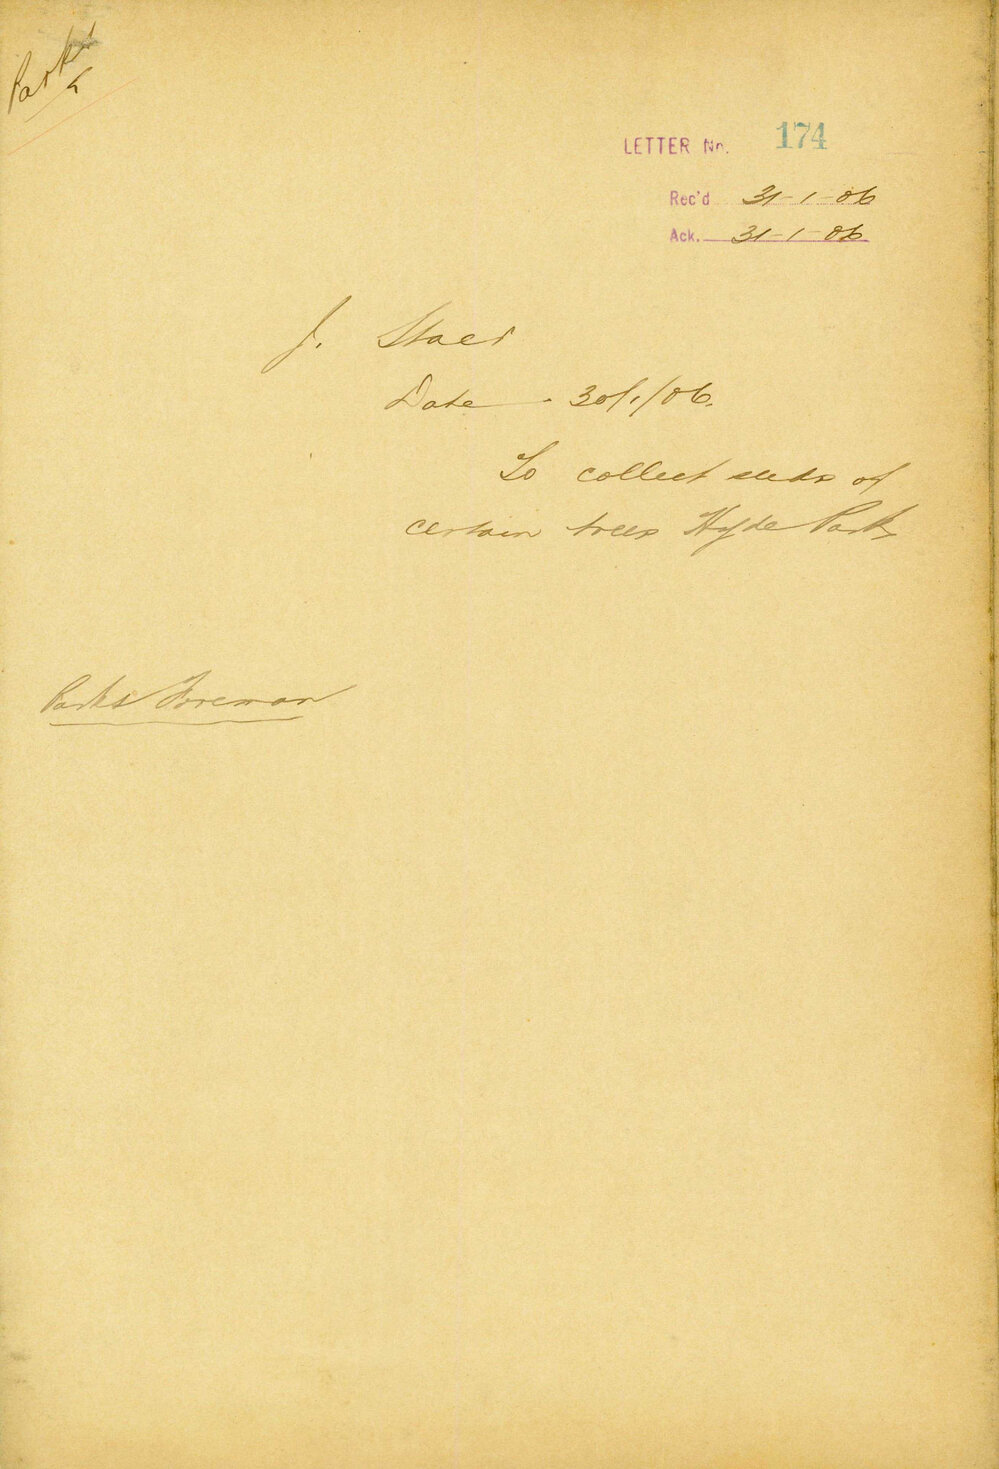 Parks
LETTER No. 174
Rec'd 31-1-06
Ack. 31-1-06
J. Staer
Date - 30/1/06.
To collect seeds of
certain trees Hyde Park
Parks Foreman